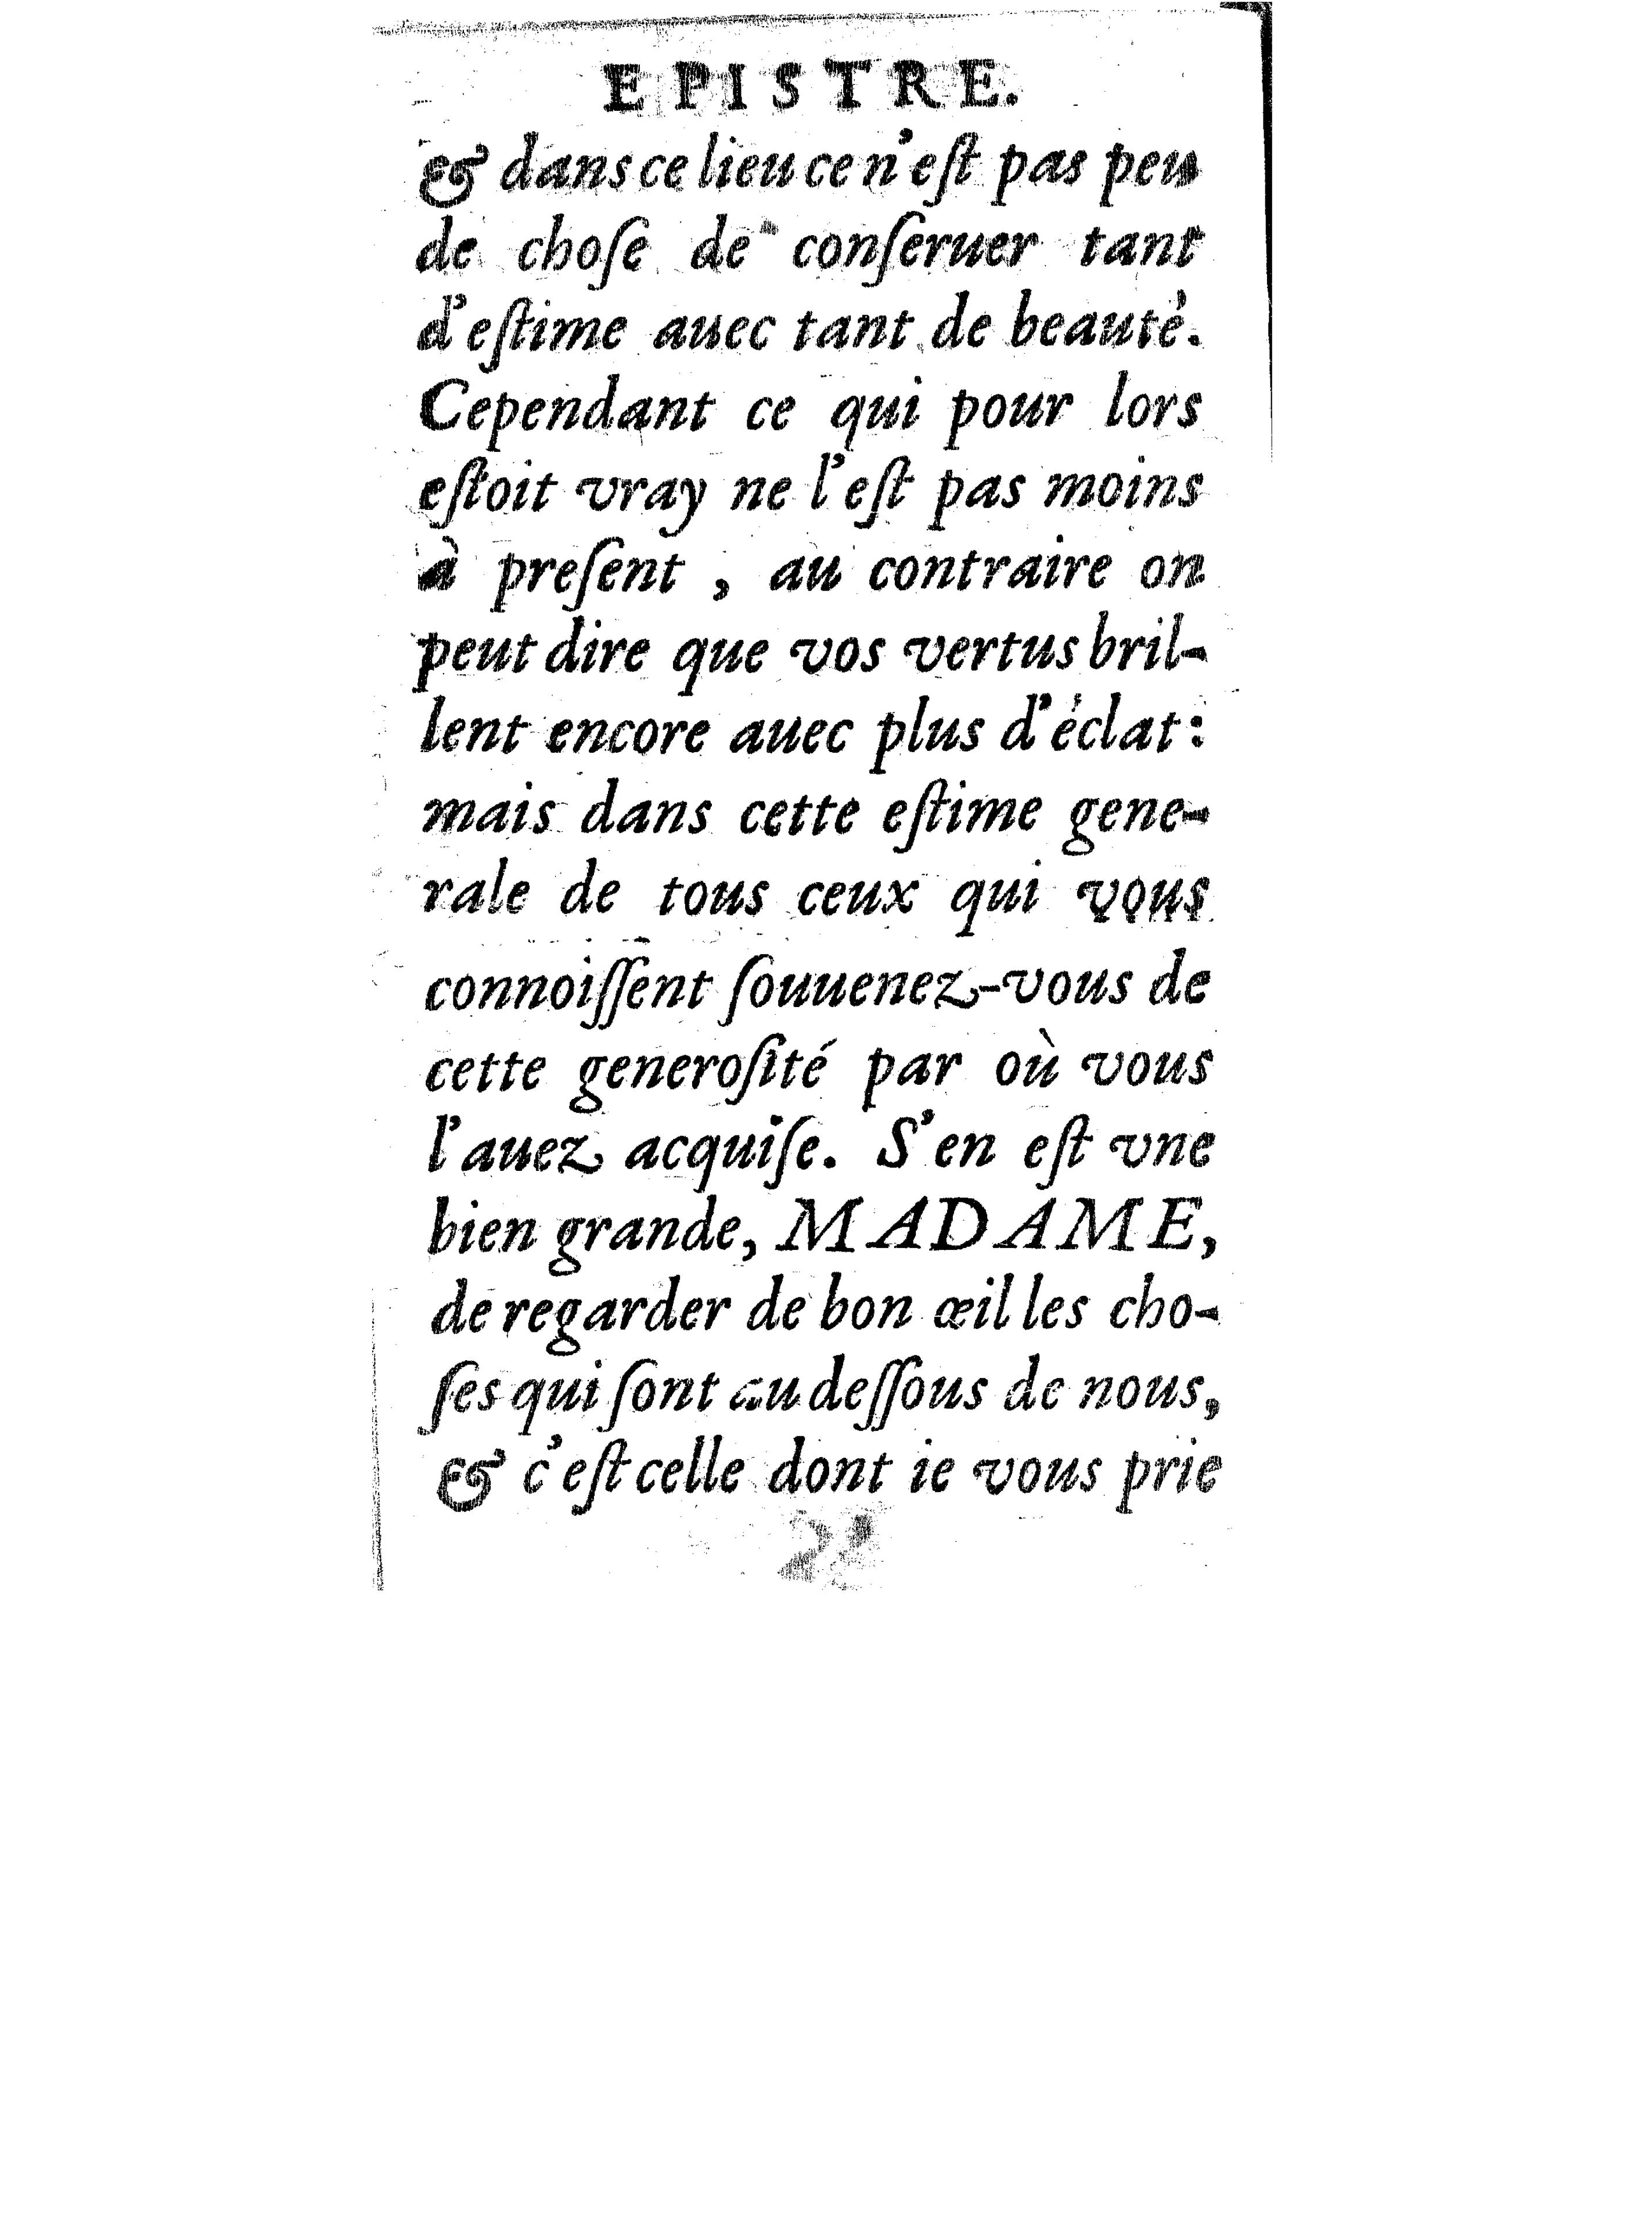 EPISTRE.
& dans ce lieu ce n'eſt pas peu
de choſe de conſeruer tant
d'eſtime auec tant de beauté.
Cependant ce qui pour lors
eſtoit vray ne l'eſt pas moins
à preſent , au contraire on
peut dire que vos vertus bril-
lent encore auec plus d'éclat :
mais dans cette eſtime gene-
rale de tous ceux qui vous
connoiſſent ſouuenez-vous de
cette generoſité par où vous
l'auez acquiſe. S'en eſt vne
bien grande, MADAME,
de regarder de bon œil les cho-
ſes qui ſont au deſſous de nous,
& c'eſt celle dont ie vous prie